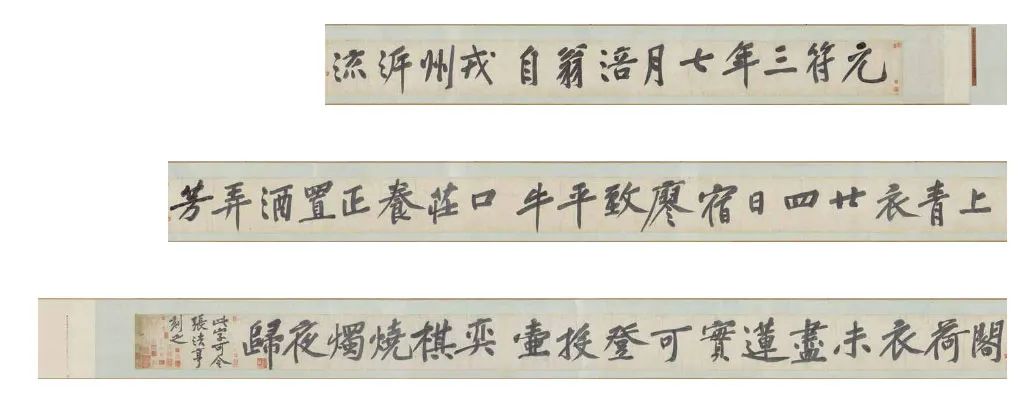 元符三年七月涪翁自戎州泝流
上青衣廿四日宿廖致平牛口莊養正置酒弄芳
閣荷衣未盡蓮實可登投壺奕棋燒燭夜歸
此字可令
張法亨
刻之